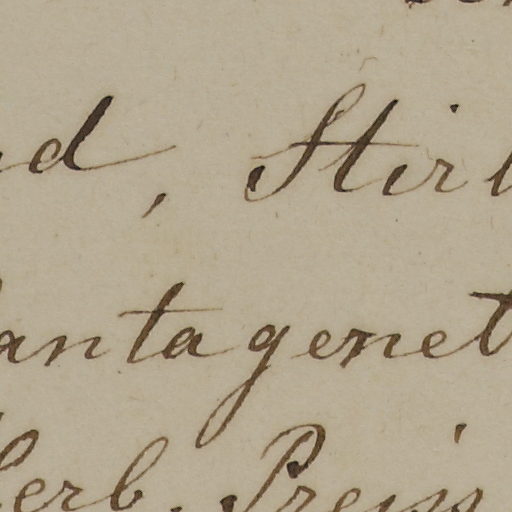 d, Stirl
antagenet
erb. Preiss